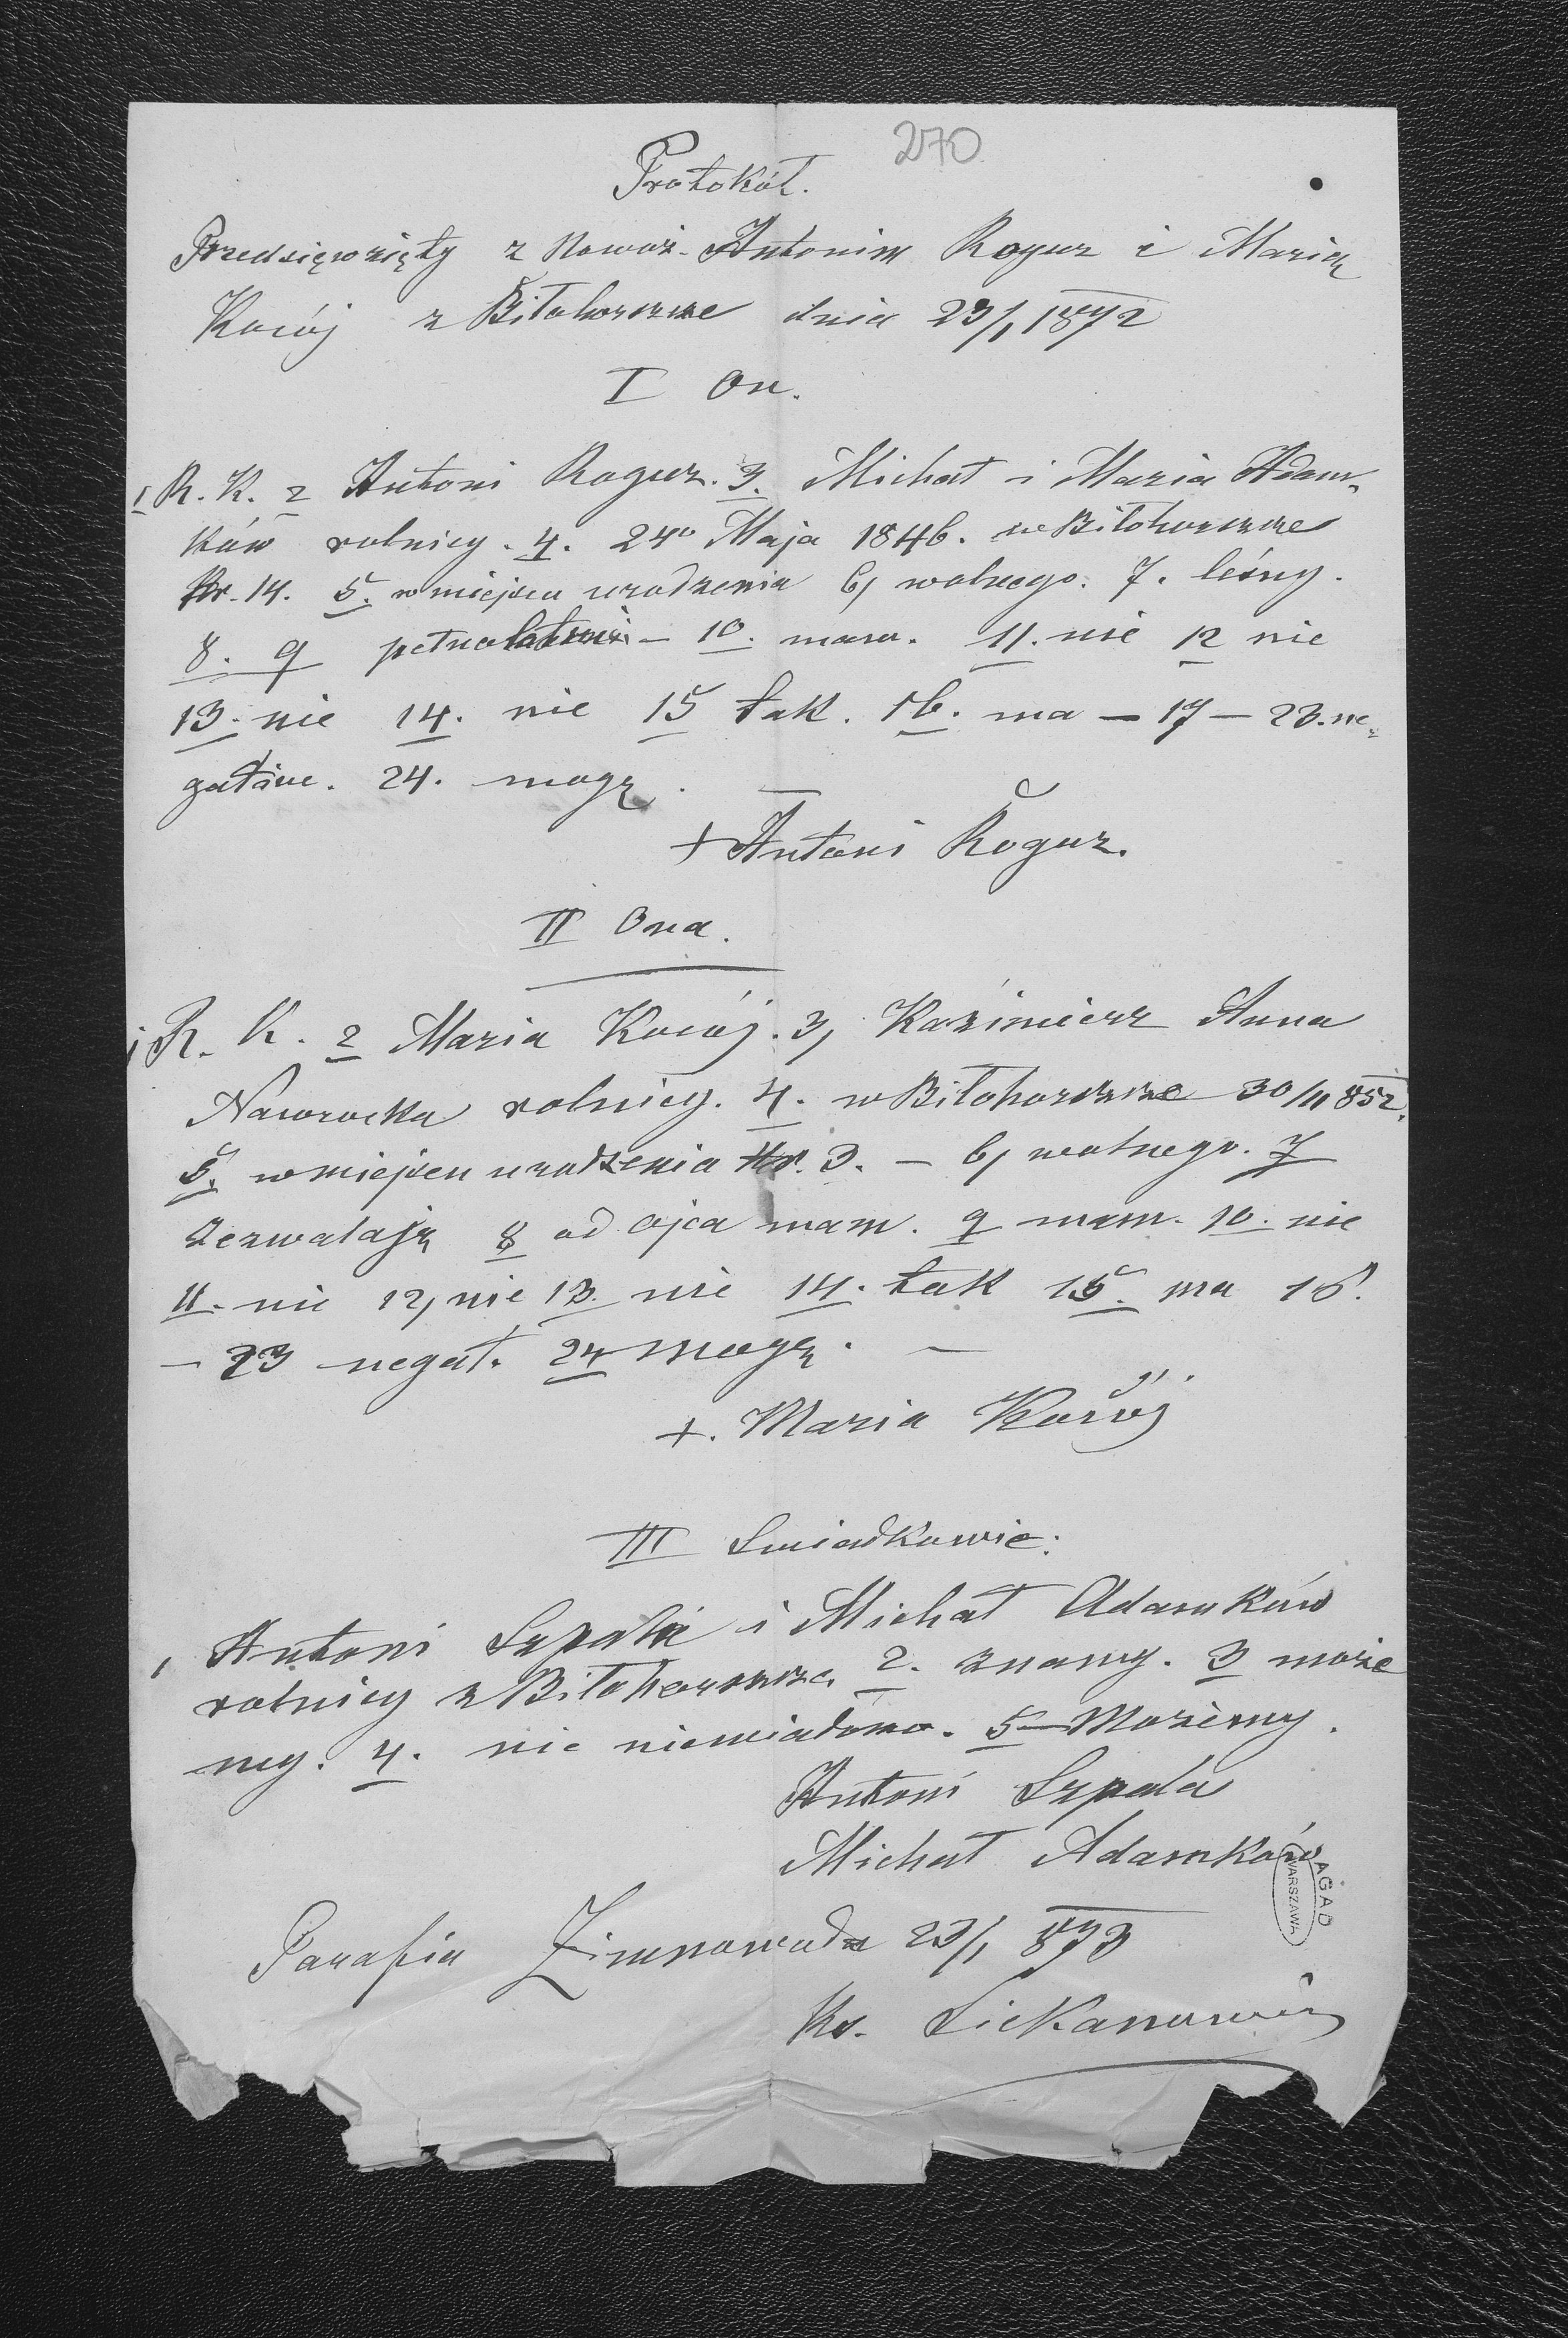 270
Protokół.
Przedsięwzięty z Nowoż. Antonim Roguz i Marią
Kocój z Biłohorszcze dnia 23/1 1872
I On.
1 R. K. 2 Antoni Roguz. 3. Michał i Maria Adam-
ków rolnicy. 4. 24º Maja 1846. w Biłohorszcze
Nr. 14. 5. w miejscu urodzenia 6, wolnego. 7. leśny.
8. 9 pełnoletni – 10. mam. 11. nie 12 nie
13. nie 14. nie 15 tak. 16. ma – 17 – 23. ne-
gative. 24. mogę.
+ Antoni Roguz.
II Ona.
1 R. K. 2 Maria Kocój. 3, Kazimierz Anna
Nawrocka rolnicy. 4. w Biłohorszcze 30/11 852.
5. w miejscu urodzenia Nr. 3. – 6, wolnego. 7
zezwalają 8 od ojca mam. 9 mam. 10. nie
11. nie 12, nie 13. nie 14. tak 15. ma 16.
– 23 negat. 24 mogę. –
+. Maria Kocój
III Swiadkowie:
1 Antoni Szpala i Michał Adamków
rolnicy z Biłohorszcze. 2. znamy. 3 może
my. 4. nic niewiadomo. 5 – Możemy.
Antoni Szpala
Michał Adamków
AGAD
WARSZAWA
Parafia Zimnowoda 23/1 873
Ks.